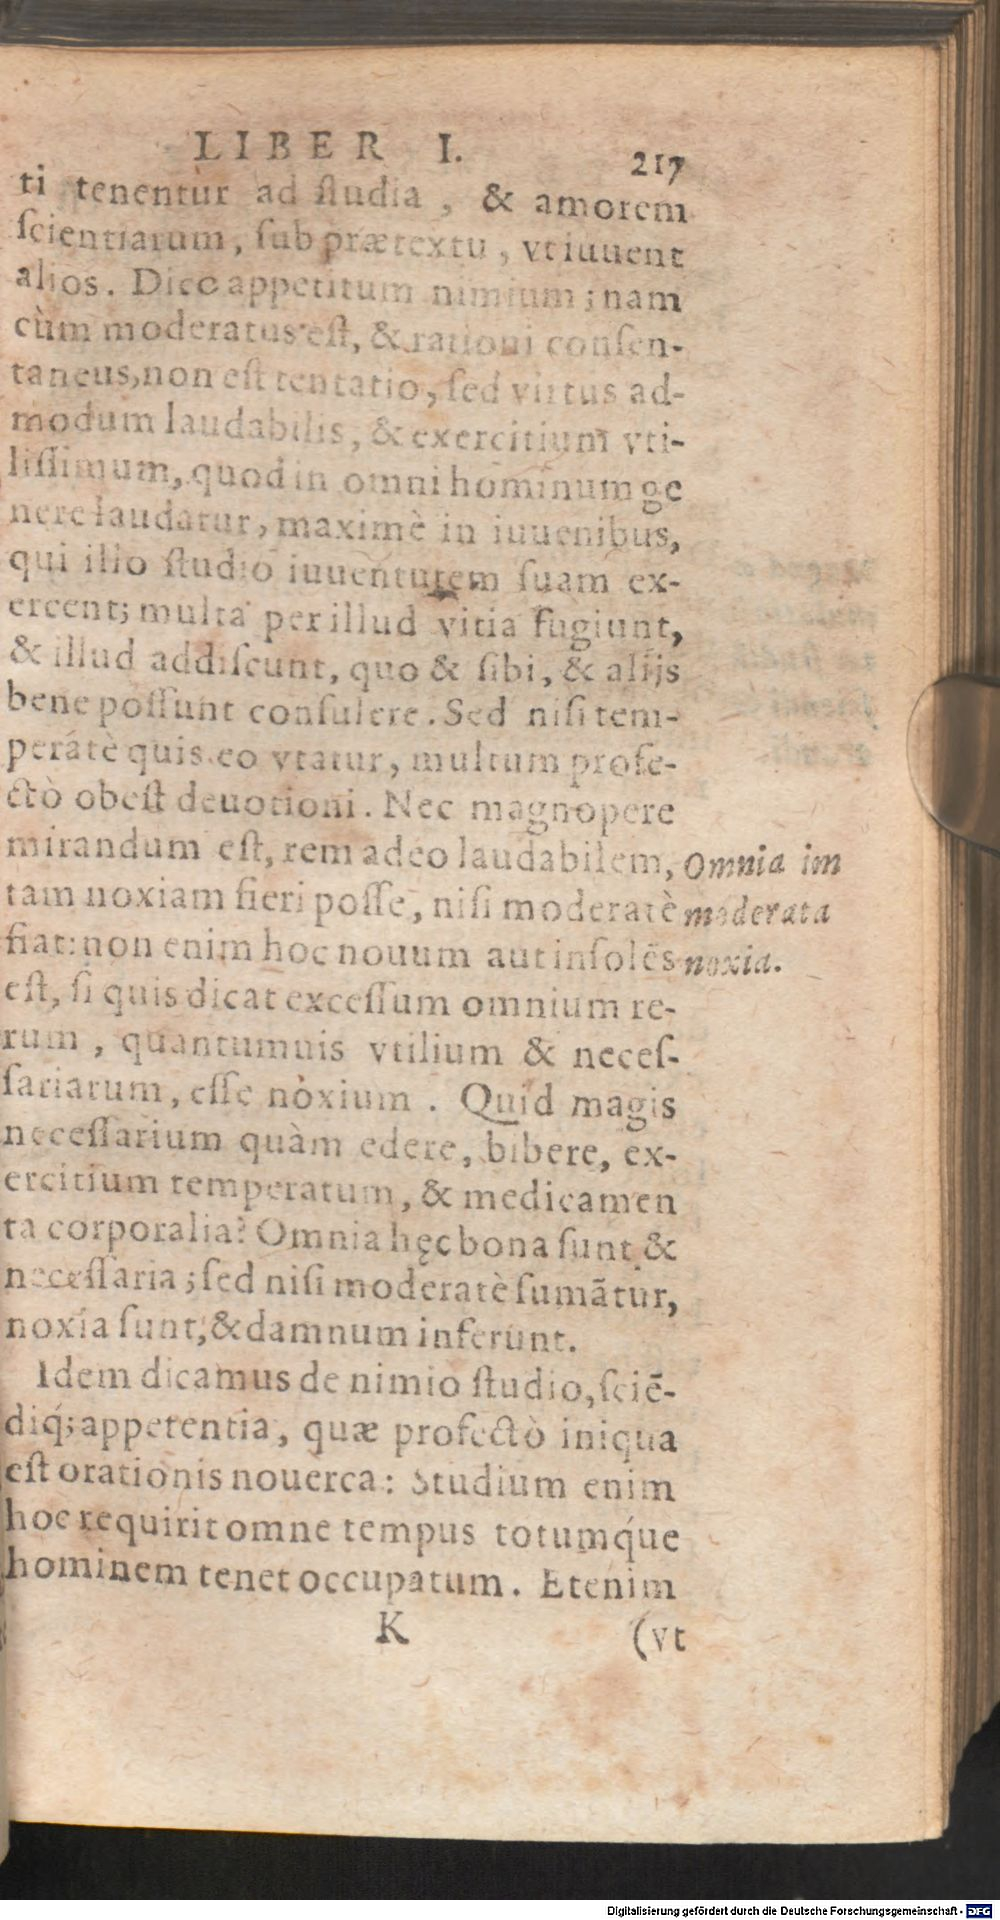 LIBER I. 217
ti tenentur ad ſtudia, & amorem
ſcientiarum, ſub prætextu, vt iuuent
alios. Dico appetitum nimium; nam
cùm moderatus eſt, & rationi conſen-
taneus, non eſt tentatio, ſed virtus ad-
modum laudabilis, & exercitium vti-
liſſimum, quod in omni hominum ge
nere laudatur, maximè in iuuenibus,
qui illo ſtudio iuuentutem ſuam ex-
ercent; multa per illud vitia fugiunt,
& illud addiſcunt, quo & ſibi, & alijs
bene poſſunt conſulere. Sed niſi tem-
peratè quis eo vtatur, multum profe-
ctò obeſt deuotioni. Nec magnopere
mirandum eſt, rem adeo laudabilem,
tam noxiam fieri poſſe, niſi moderatè
fiat: non enim hoc nouum aut inſolēs
eſt, ſi quis dicat exceſſum omnium re-
rum, quantumuis vtilium & neceſ-
ſariarum, eſſe noxium. Quid magis
neceſſarium quàm edere, bibere, ex-
ercitium temperatum, & medicamen
ta corporalia? Omnia hęc bona ſunt &
neceſſaria; ſed niſi moderatè ſumātur,
noxia ſunt, & damnum inferunt.
Idem dicamus de nimio ſtudio, ſciē-
diq́; appetentia, quæ profectò iniqua
eſt orationis nouerca: Studium enim
hoc requirit omne tempus totumq́ue
hominem tenet occupatum. Etenim
K (vt
Omnia im
moderata
noxia.
Digitalisierung gefördert durch die Deutsche Forschungsgemeinschaft - DFG